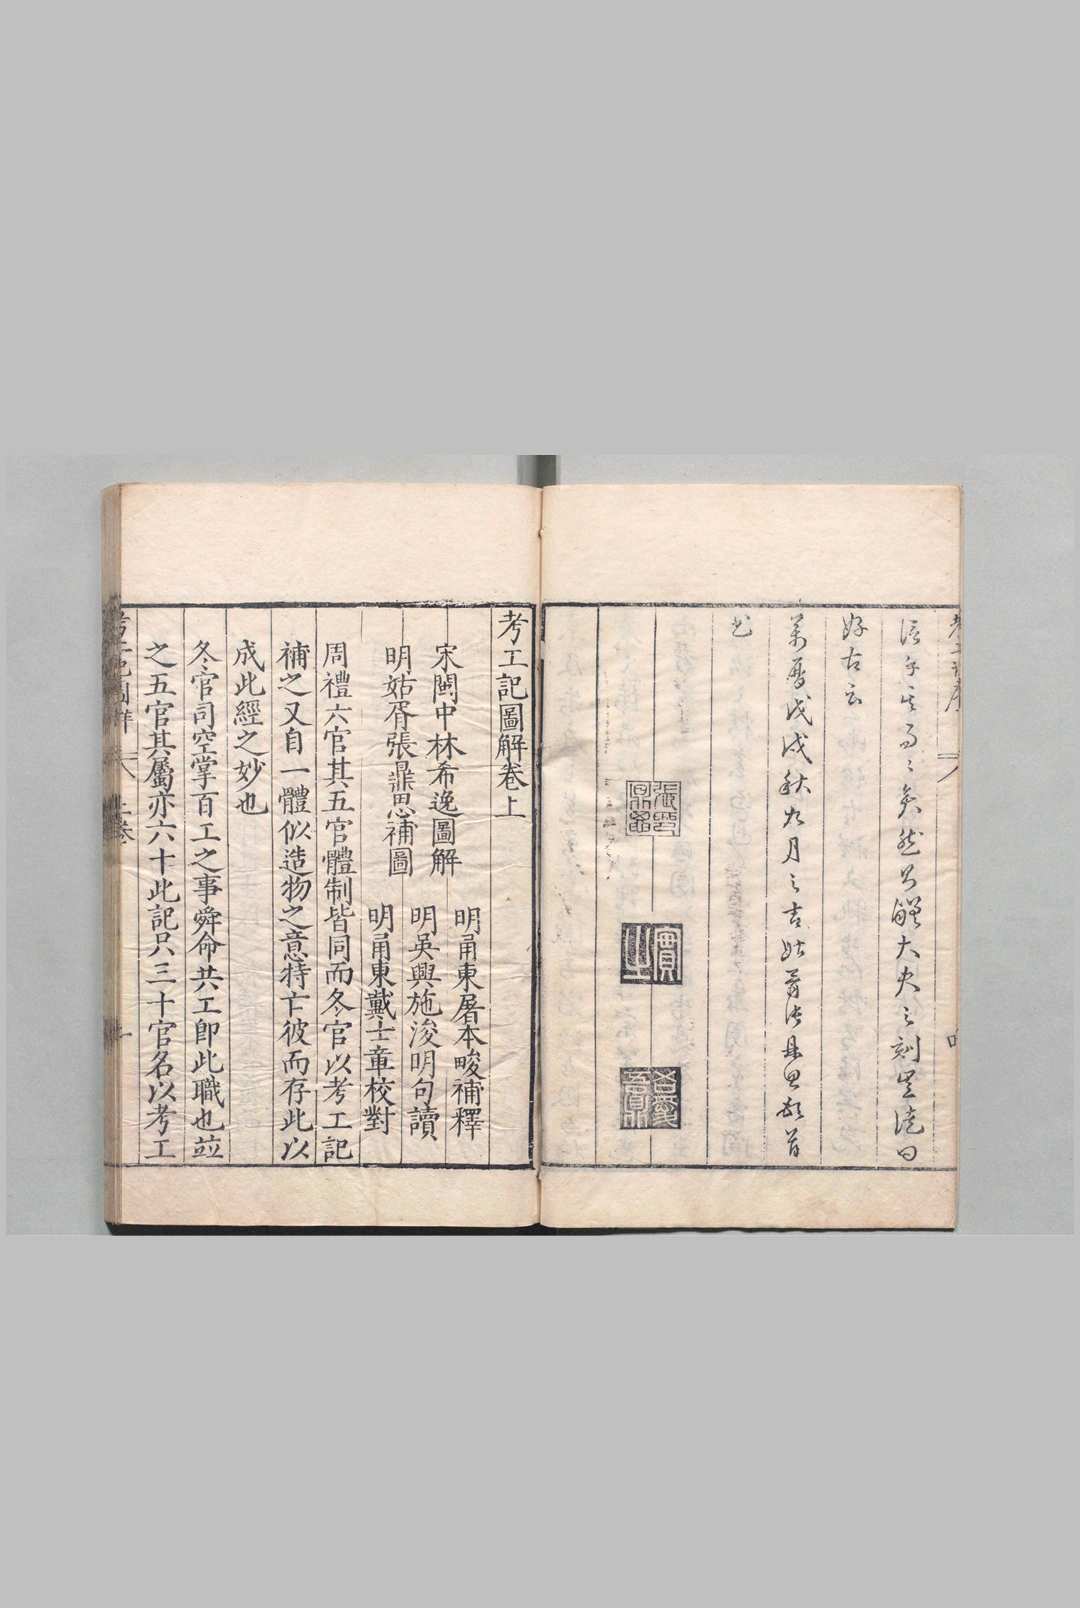 大夫之刻
好古云
萬曆戊戌秋九月之吉姑胥張鼎思首
考工記圖解卷上
宋閩中林希逸圖解
明甬東屠本畯補釋
明姑胥張鼎思補圖
明吳興施浚明句讀
明甬東戴士章校對
周禮六官其五官體制皆同而冬官以考工記
補之又自一體似造物之意特亡彼而存此以
成此經之妙也
冬官司空掌百工之事舜命共工即此職也並
之五官其屬亦六十此記只三十官名以考工
考工記圖解
上卷
一